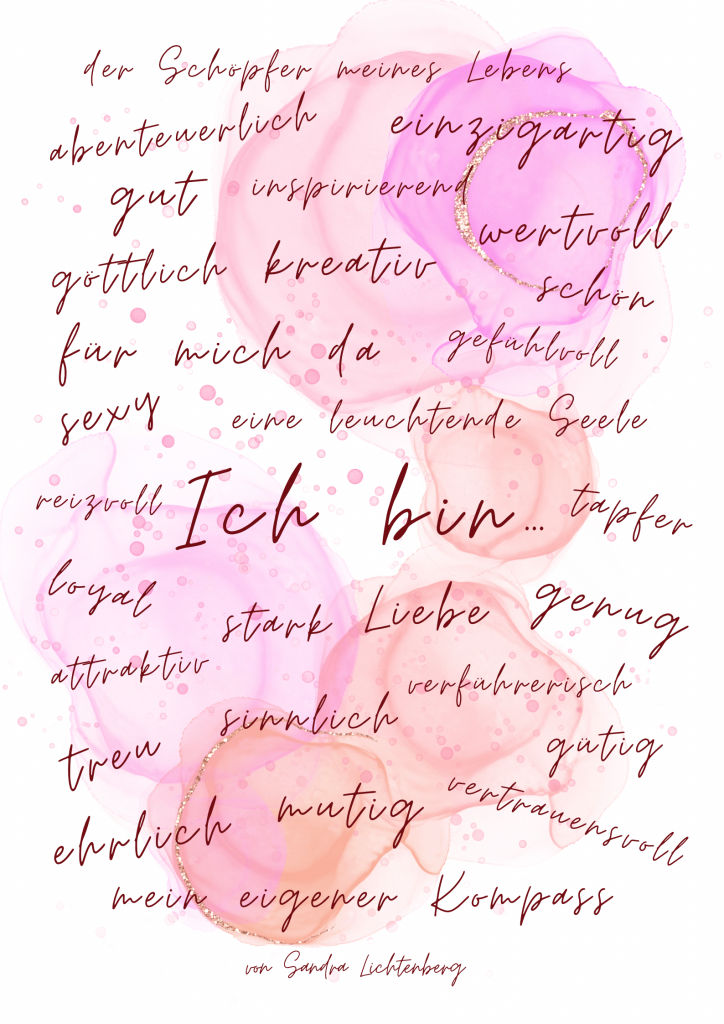 der Schöpfer meines Lebens
abenteuerlich einzigartig
gut inspirierend
wertvoll
göttlich kreativ
schön
für mich da gefühlvoll
sexy eine leuchtende Seele
reizvoll Ich bin... tapfer
loyal stark Liebe genug
attraktiv verführerisch
sinnlich
treu gütig
ehrlich mutig vertrauensvoll
mein eigener Kompass
von Sandra Lichtenberg